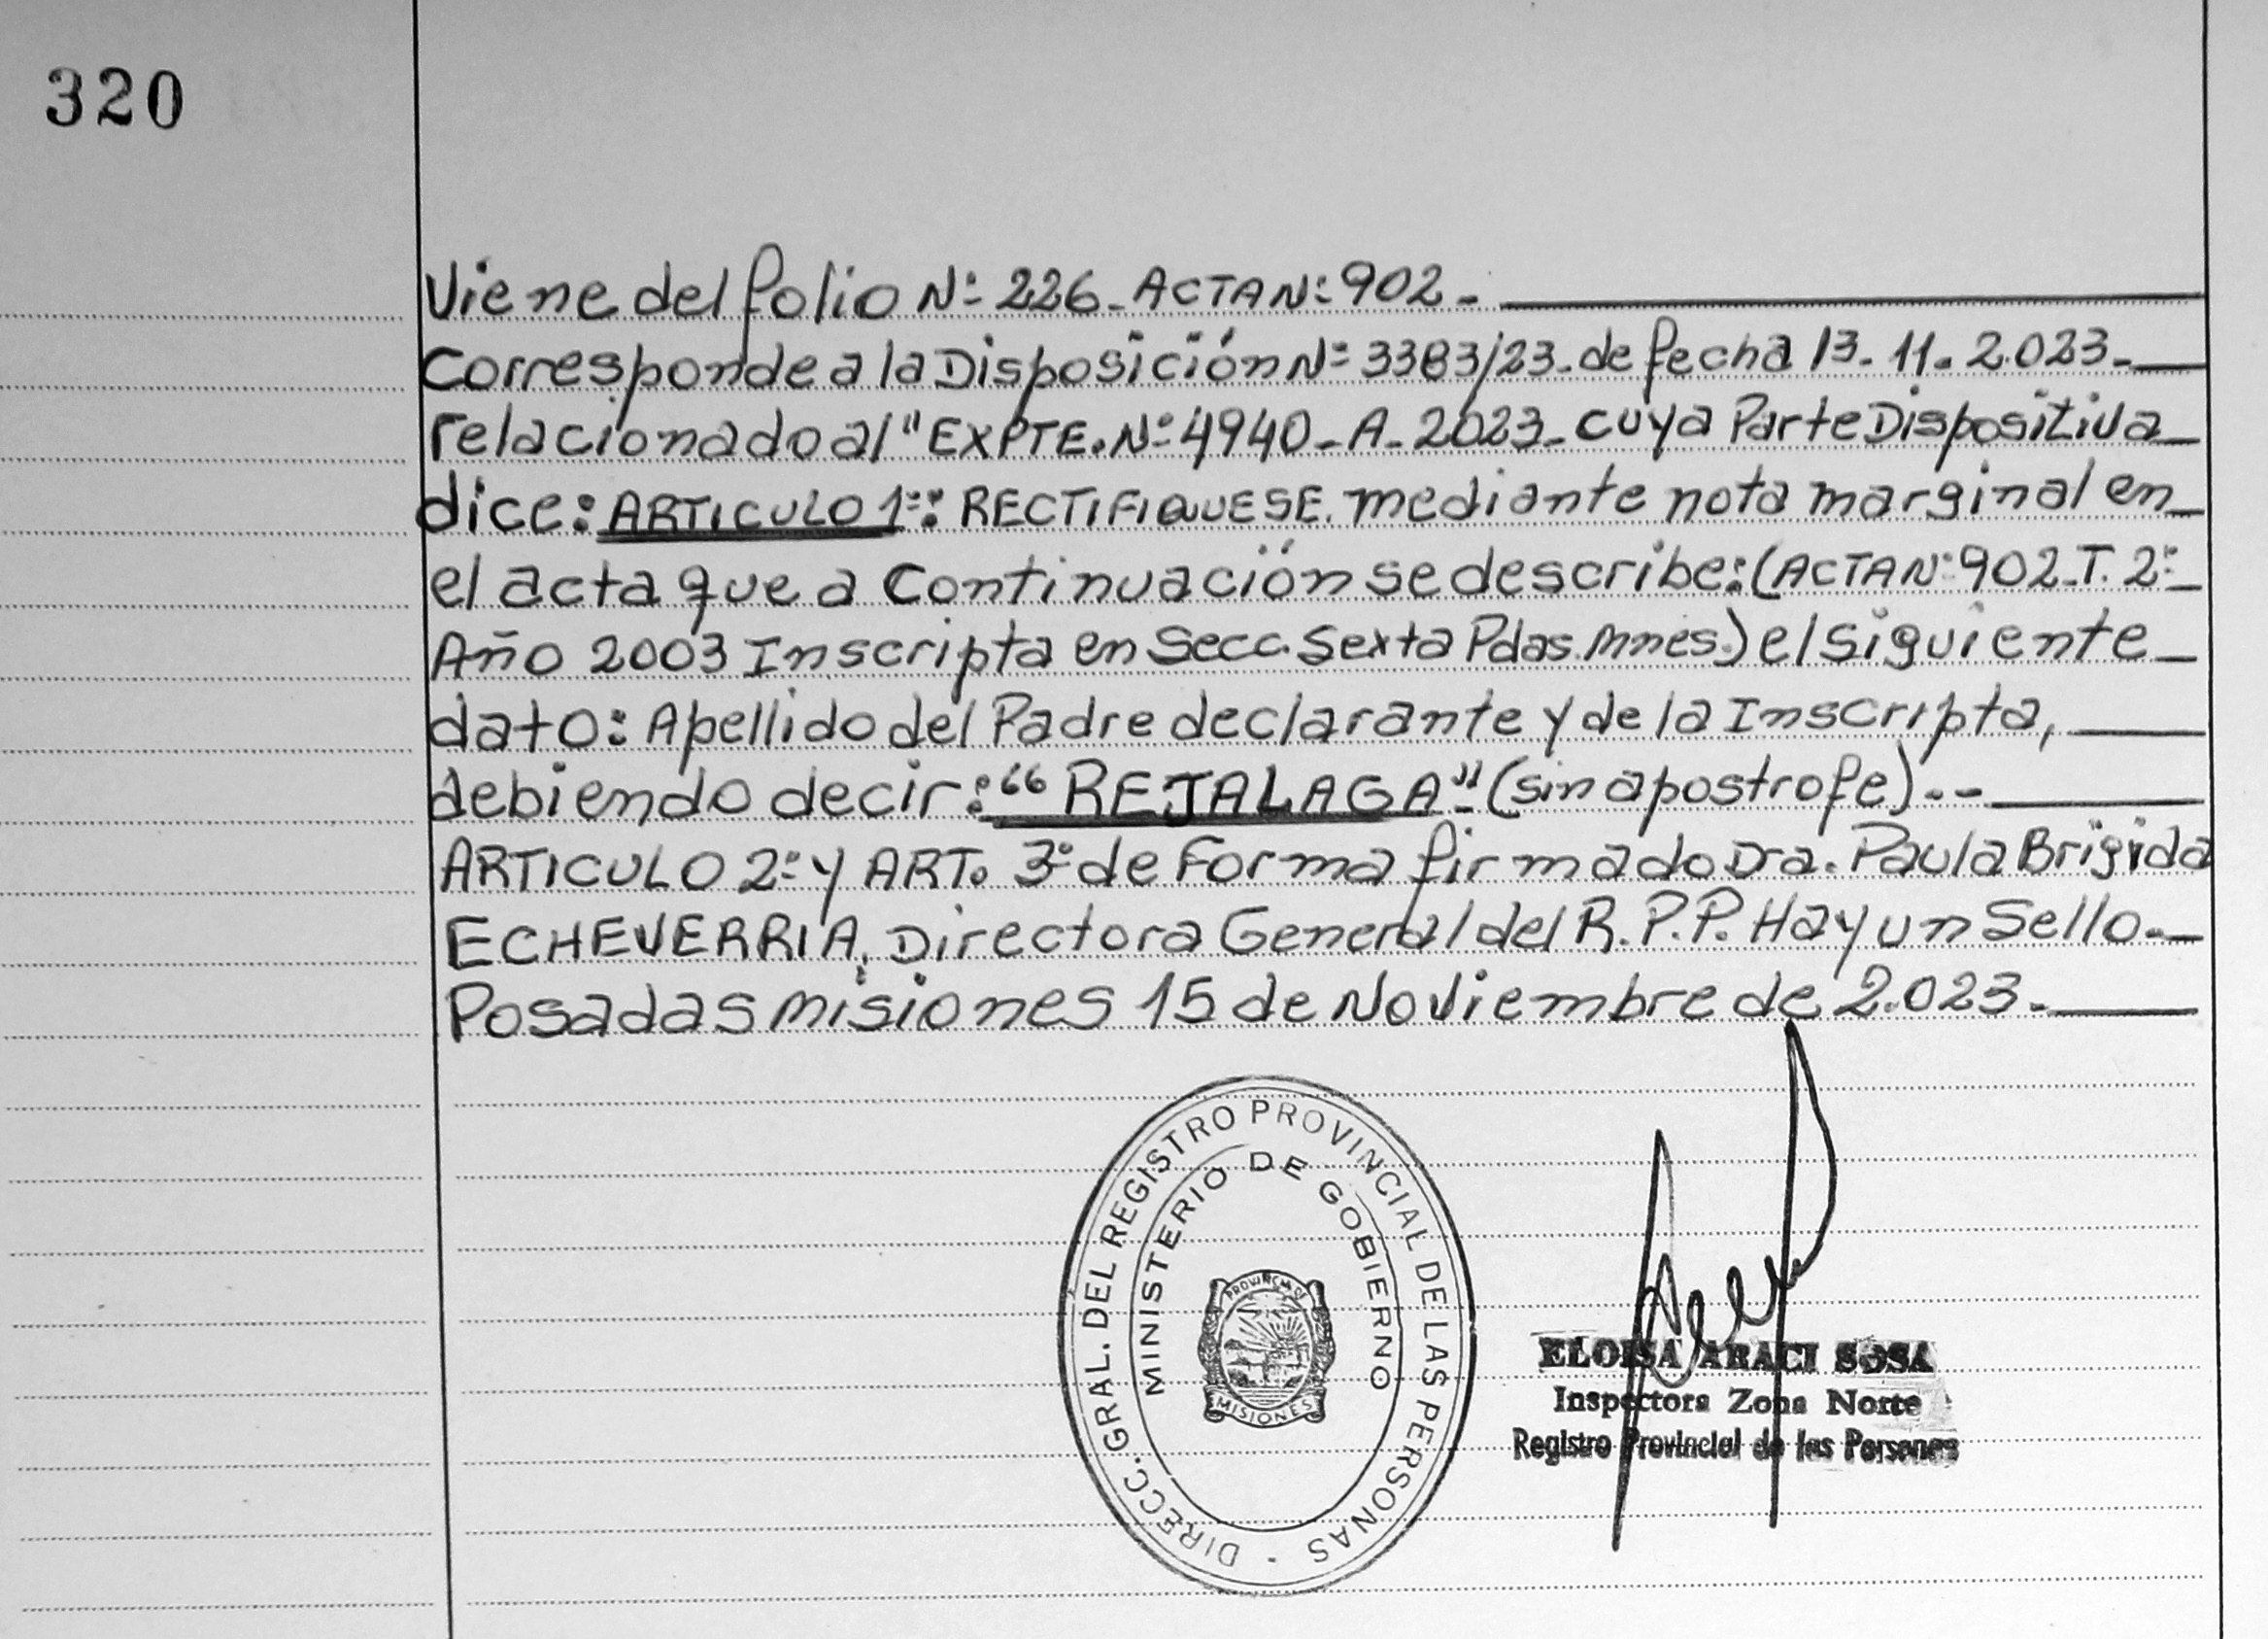 320
Viene del folio Nº 226- ACTA Nº 902-
Corresponde a la Disposición Nº 3383/23- de fecha 13-11-2.023-
relacionado al "EXPTE. Nº 4940-A-2023- cuya Parte Dispositiva
dice: ARTICULO 1º: RECTIFIQUESE. mediante nota marginal en
el acta que a Continuación se describe: (ACTA Nº 902-T. 2º-
Año 2003 Inscripta en Secc. Sexta Pdas. Mnes.) el siguiente
dato: Apellido del Padre declarante y de la Inscripta,
debiendo decir: "REJALAGA" (sin apostrofe)--
ARTICULO 2º y ART. 3º de Forma firmado Dra. Paula Brigida
ECHEVERRIA, Directora General del R.P.P. Hay un Sello.-
Posadas misiones 15 de Noviembre de 2.023-
DIRECC. GRAL. DEL REGISTRO PROVINCIAL DE LAS PERSONAS -
MINISTERIO DE GOBIERNO
PROVINCIA DE
MISIONES
ELOISA ARACI SOSA
Inspectora Zona Norte
Registro Provincial de las Personas